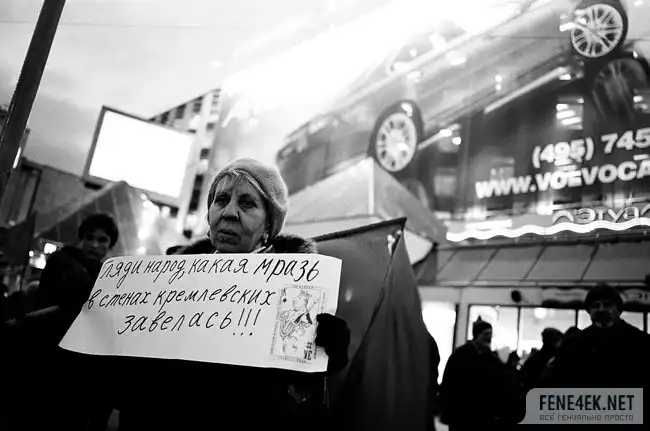 Гляди народ, какая мразь
в стенах кремлевских
завелась!!!
(495) 745
WWW.VOEVOCA
FENE4EK.NET
ВСЁ ГЕНИАЛЬНО ПРОСТО